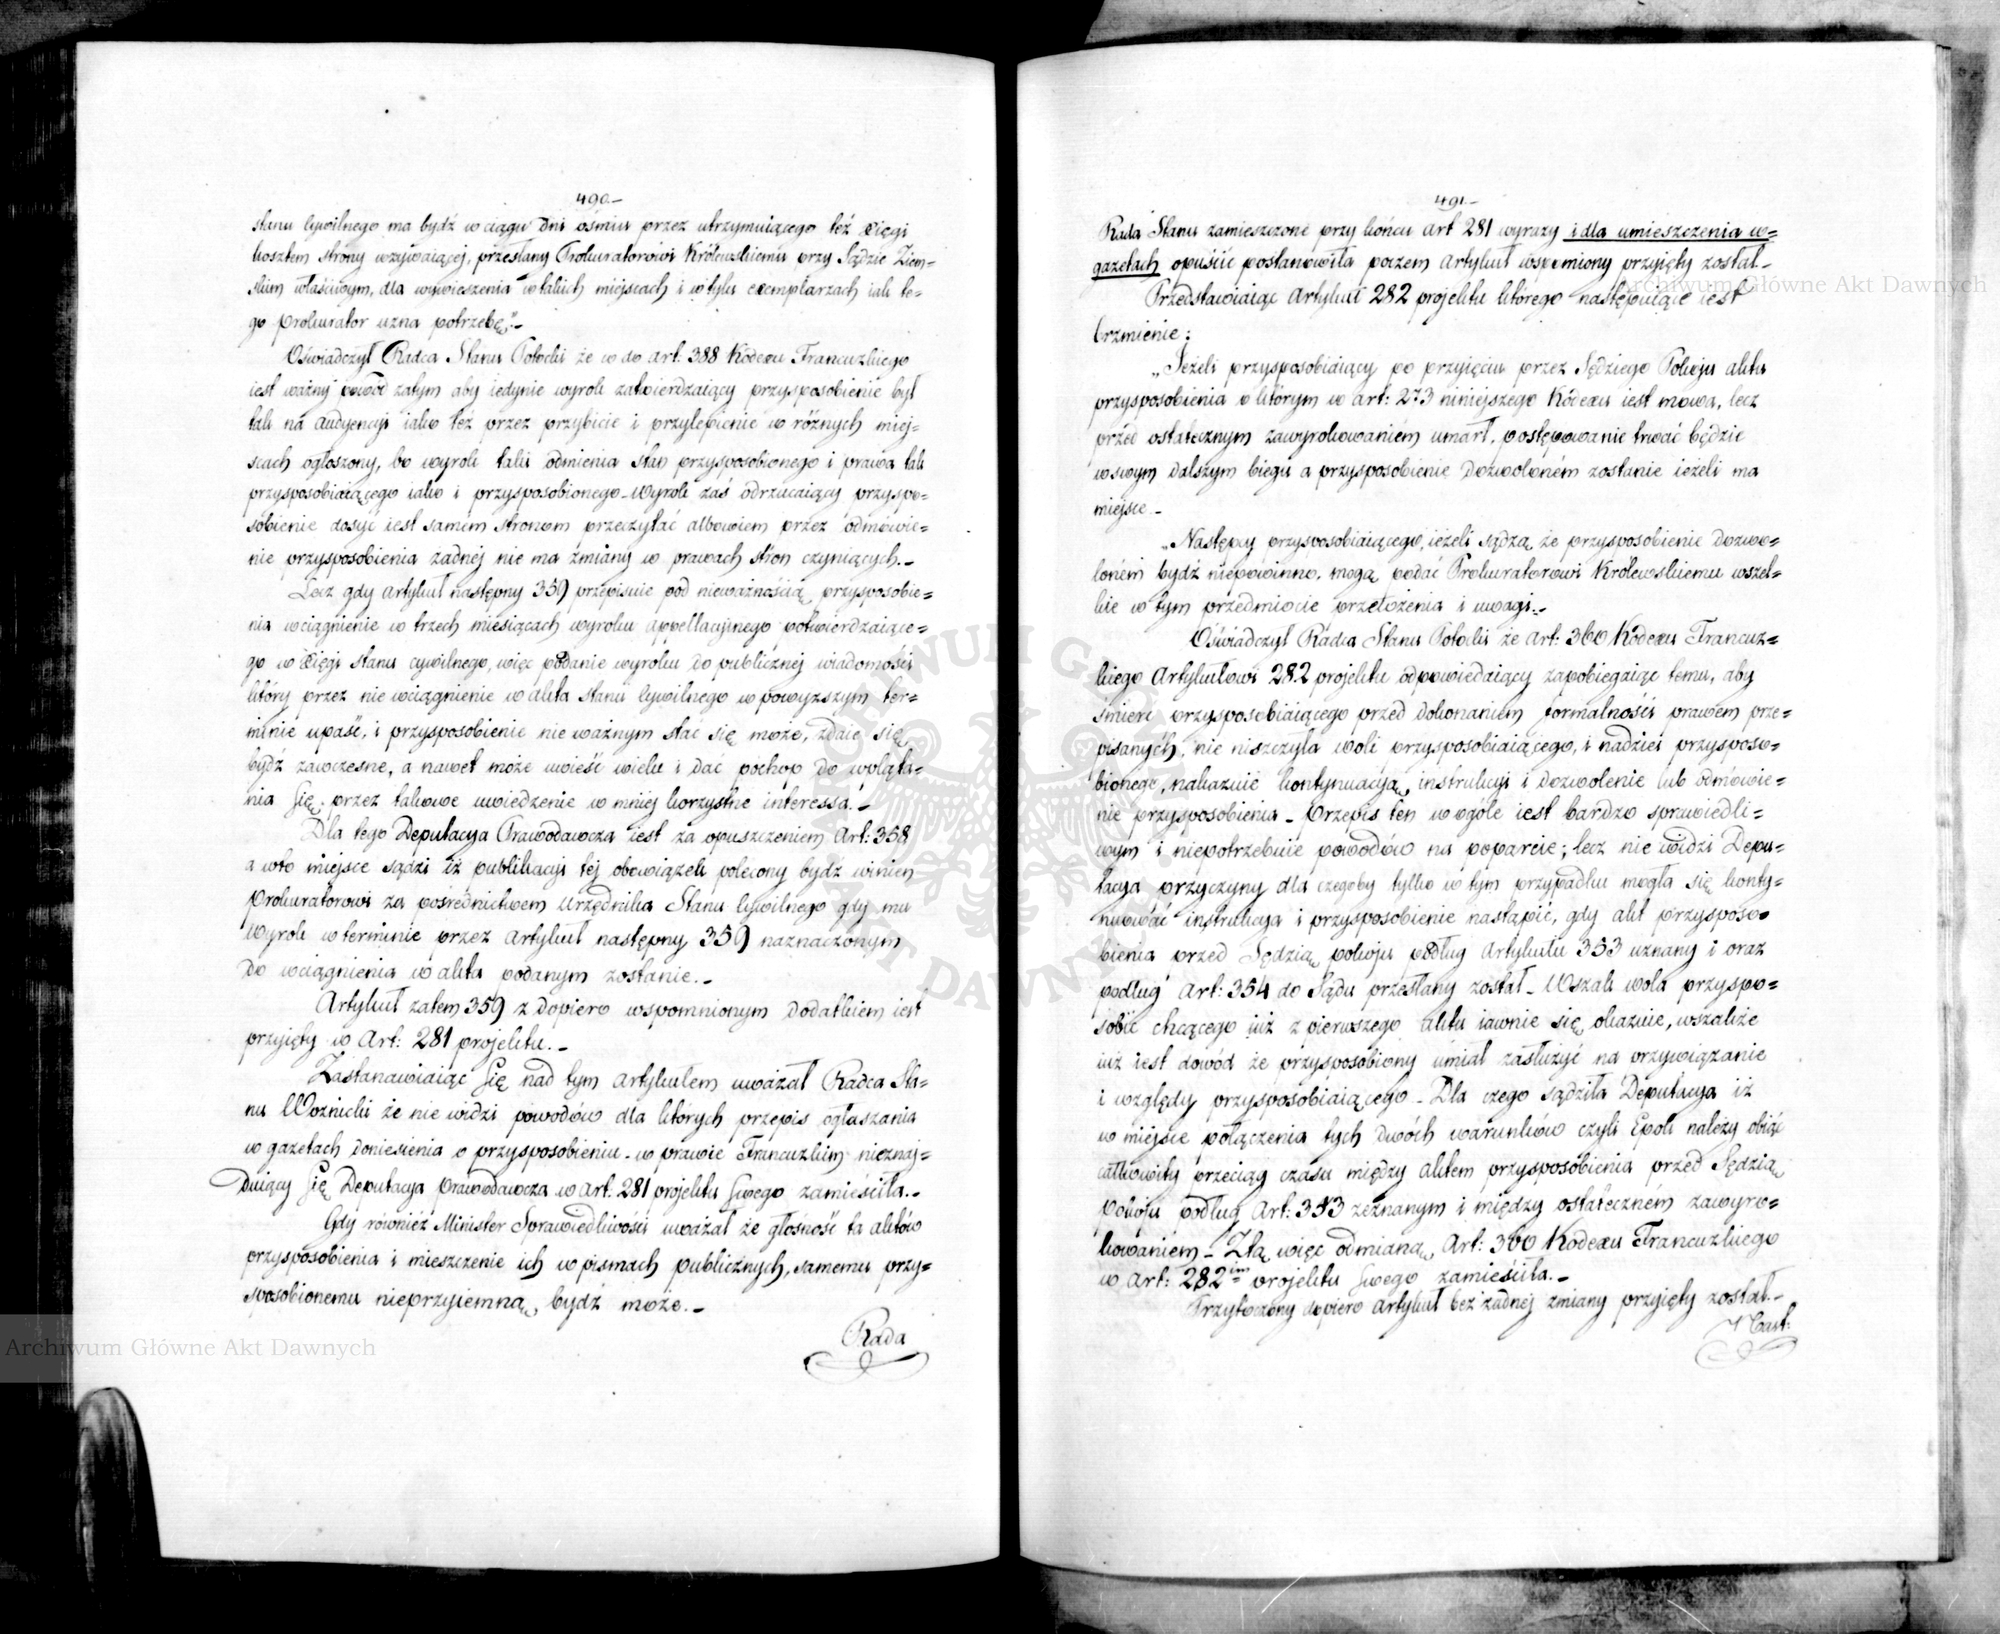 490.-
stanu Cywilnego ma bydź w ciągu dni ośmiu przez utrzymuiącego też xięgi
kosztem strony wzywaiącej, przesłany Prokuratorowi Królewskiemu przy Sądzie Ziem=
skim właściwym, dla wywieszenia w takich miejscach i w tylu exemplarzach iak te=
go Prokurator uzna potrzebę."-
Oświadczył Radca Stanu Potocki że w do art: 388 Kodexu Francuzkiego
iest ważny powód zatym aby iedynie wyrok zatwierdzaiący przysposobienie był
tak na audyencyi iako też przez przybicie i przylepienie w różnych miej=
scach ogłoszony, bo wyrok taki odmienia stan przysposobionego i prawa tak
przysposobiaiącego iako i przysposobionego - wyrok zaś odrzucaiący przyspo=
sobienie dosyć iest samem stronom przeczytać albowiem przez odmówie=
nie przysposobienia żadnej nie ma zmiany w prawach stron czyniących.-
Lecz gdy artykuł następny 359 przepisuie pod nieważnością przysposobie=
nia wciągnienie w trzech miesiącach wyroku appellacyjnego potwierdzaiące=
go w xięgi stanu cywilnego, więc podanie wyroku do publicznej wiadomości
który przez nie wciągnienie w akta stanu Cywilnego w powyższym ter=
minie upaść, i przysposobienie nie ważnym stać się może, zdaie się
bydź zawczesne, a nawet może uwieść wielu i dać pochop do wpląta=
nia się przez takowe uwiedzenie w mniej korzystne interessa.-
Dla tego Deputacya Prawodawcza iest za opuszczeniem Art: 358
a w to miejsce sądzi iż publikacyi tej obowiązek polecony bydź winien
Prokuratorowi za pośrednictwem Urzędnika Stanu Cywilnego gdy mu
wyrok w terminie przez artykuł następny 359 naznaczonym
do wciągnienia w akta podanym zostanie.-
Artykuł zatem 359 z dopiero wspomnionym dodatkiem iest
przyięty w Art: 281 projektu.-
Zastanawiaiąc się nad tym artykułem uważał Radca Sta=
nu Woznicki że nie widzi powodów dla których przepis ogłaszania
w gazetach doniesienia o przysposobieniu - w prawie Francuzkim nieznaj=
duiący się Deputacya Prawodawcza w art: 281 projektu swego zamieściła.-
Gdy również Minister Sprawiedliwości uważał że głośność ta aktów
przysposobienia i mieszczenie ich w pismach publicznych, samemu przy=
sposobionemu nieprzyiemną bydź może.-
Rada
491.-
Rada Stanu zamieszczone przy końcu art 281 wyrazy i dla umieszczenia w=
gazetach opuścić postanowiła poczem artykuł wspomiony przyięty został.-
Przedstawiaiąc artykuł 282 projektu którego następuiące iest
brzmienie:
„Jeżeli przysposobiaiący po przyięciu przez Sędziego Pokoju aktu
przysposobienia o którym w art: 273 niniejszego Kodexu iest mowa, lecz
przed ostatecznym zawyrokowaniem umarł, postępowanie trwać będzie
w swym dalszym biegu a przysposobienie dozwolonem zostanie ieżeli ma
miejsce.-
„Następcy przysposobiaiącego, ieżeli sądzą że przysposobienie dozwo=
lonem bydź niepowinno, mogą podać Prokuratorowi Królewskiemu wszel=
kie w tym przedmiocie przełożenia i uwagi.-
Oświadczył Radca Stanu Potocki że art: 360 Kodexu Francuz=
kiego Artykułowi 282 projektu odpowiedaiący zapobiegaiąc temu, aby
śmierć przysposobiaiącego przed dokonaniem formalności prawem prze=
pisanych, nie niszczyła woli przysposobiaiącego, i nadziei przysposo=
bionego, nakazuie kontynuacyą instrukcyi i dozwolenie lub odmówie=
nie przysposobienia - Przepis ten w ogóle iest bardzo sprawiedli=
wym i niepotrzebuie powodów na poparcie; lecz nie widzi Depu=
tacya przyczyny dla czegoby tylko w tym przypadku mogła się konty=
nuować instrukcya i przysposobienie nastąpić, gdy akt przysposo=
bienia przed Sędzią pokoju podług artykułu 353 uznany i oraz
podług Art: 354 do Sądu przesłany został - Wszak wola przyspo=
sobić chcącego już z pierwszego aktu iawnie się okazuie, wszakże
iuż iest dowód że przysposobiony umiał zasłużyć na przywiązanie
i względy przysposobiaiącego - Dla czego sądziła Deputacya iż
w miejsce połączenia tych dwóch warunków czyli Epok należy obiąć
całkowity przeciąg czasu między aktem przysposobienia przed Sędzią
Pokoju podług Art: 353 zeznanym i między ostatecznem zawyro=
kowaniem - Z tą więc odmianą Art: 360 Kodexu Francuzkiego
w art: 282im projektu swego zamieściła.-
Przytoczony dopiero artykuł bez żadnej zmiany przyięty został.-